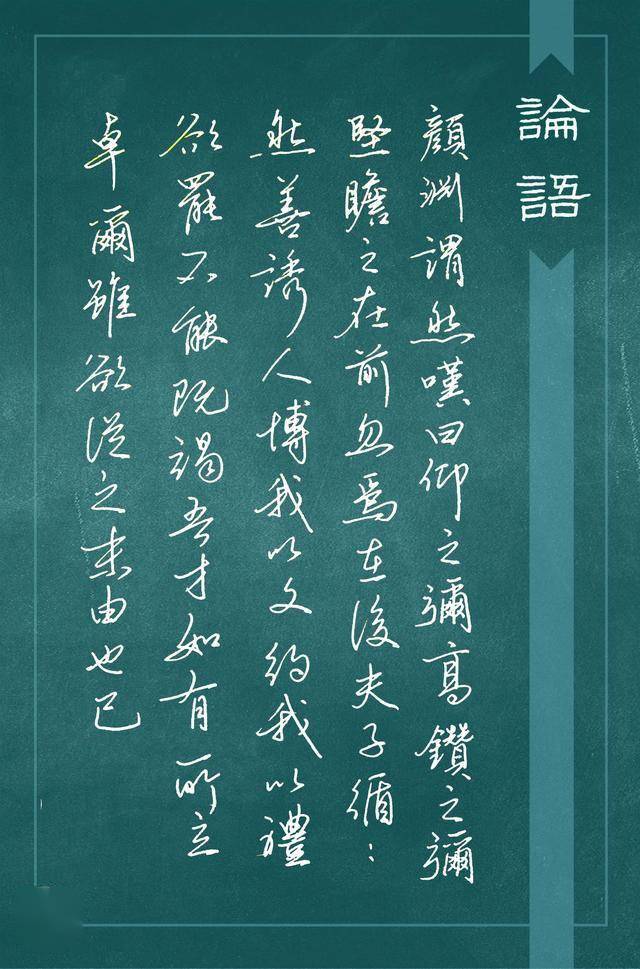 論語
顔淵謂然嘆曰仰之彌高鑽之彌
堅瞻之在前忽焉在後夫子循:
然善誘人博我以文約我以禮
欲罷不能既竭吾才如有所立
卓爾雖欲從之末由也已